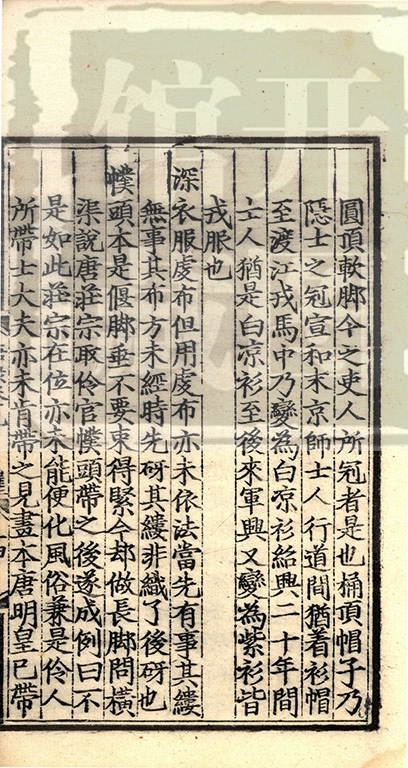 圓頂軟脚今之吏人所冠者是也桶頂帽子乃
隱士之冠宣和末京師士人行道間猶着衫帽
至渡江戎馬中乃變為白凉衫紹興二十年間
士人猶是白凉衫至後來軍興又變為紫衫皆
戎服也
深衣服虔布但用虔布亦未依法當先有事其縷
無事其布方未經時先砑其縷非織了後砑也
幞頭本是偃脚垂不要束得緊今却做長脚問橫
渠說唐莊宗取伶官幞頭帶之後遂成例曰不
是如此莊宗在位亦未能便化風俗兼是伶人
所帶士大夫亦未肯帶之見畫本唐明皇已帶